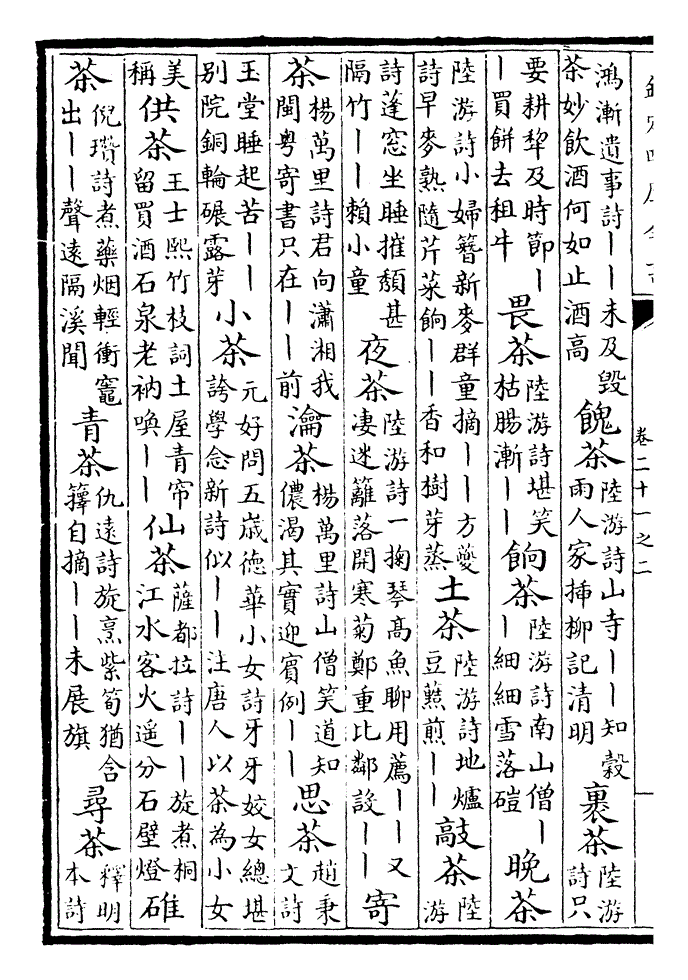 欽定四庫全書
卷二十一之二
鴻漸遺事詩——未及毀
茶妙飲酒何如止酒高
餽茶
陸游詩山寺——知穀
雨人家揷柳記清明
裹茶
陸游
詩只
要耕犂及時節—
—買餅去租牛
畏茶
陸游詩堪笑
枯腸漸——
餉茶
陸游詩南山僧—
—細細雪落磑
晚茶
陸游詩小婦簪新麥群童摘——方夔
詩早麥熟隨芹菜餉——香和樹芽蒸
土茶
陸游詩地爐
豆䕽煎——
敲茶
陸
游
詩蓬窓坐睡摧頽甚
隔竹——賴小童
夜茶
陸游詩一掬琴髙魚聊用薦——又
凄迷籬落開寒菊鄭重比鄰設——
寄
茶
楊萬里詩君向瀟湘我
閩粤寄書只在——前
瀹茶
楊萬里詩山僧笑道知
儂渴其實迎賓例——
思茶
趙秉
文詩
玉堂睡起苦——
别院銅輪碾露芽
小茶
元好問五嵗徳華小女詩牙牙姣女總堪
誇學念新詩似——注唐人以茶為小女
美
稱
供茶
王士熙竹枝詞土屋青帘
留買酒石泉老衲喚——
仙茶
薩都拉詩——旋煮桐
江水客火遥分石壁燈
碓
茶
倪瓚詩煮藥烟輕衝竈
出——聲遠隔溪聞
青茶
仇遠詩旋烹紫筍猶含
籜自摘——未展旗
尋茶
釋明
本詩